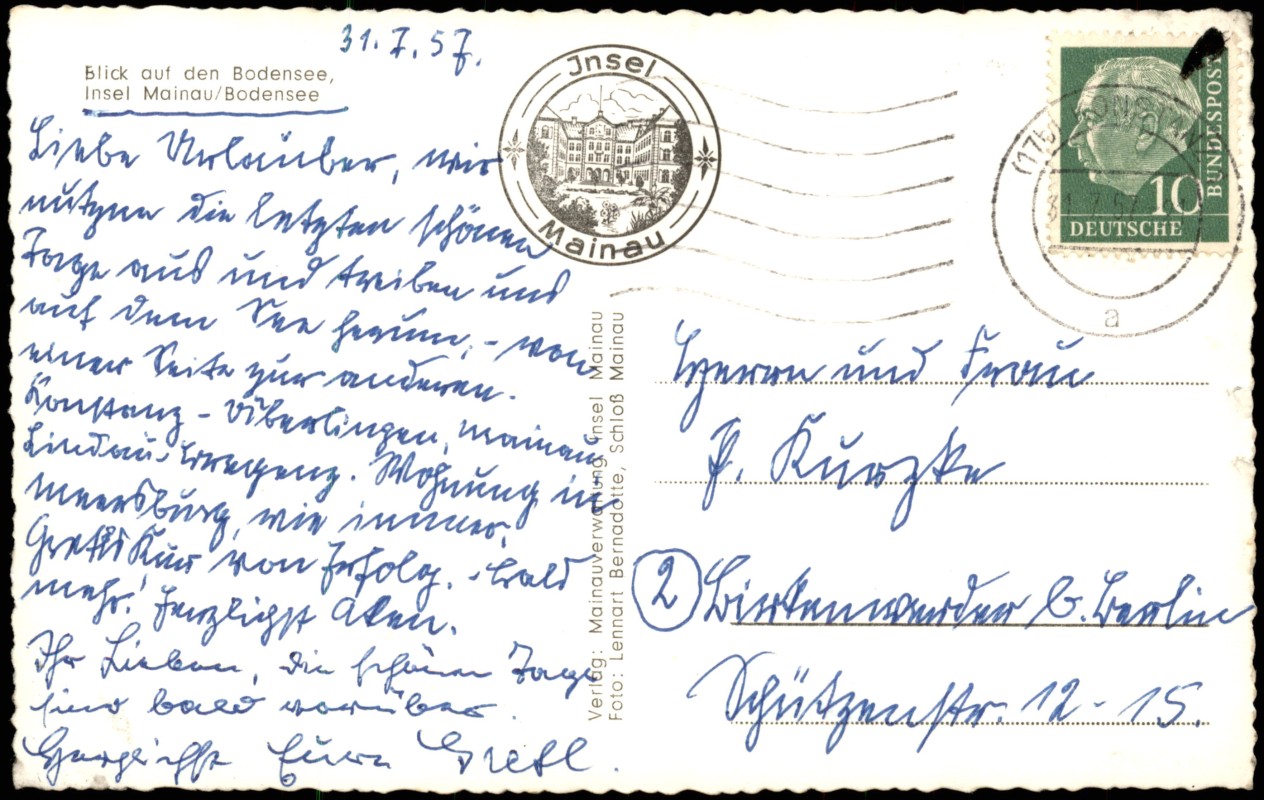 31.7.57.
Blick auf den Bodensee,
Insel Mainau/Bodensee
Liebe Urlauber, wir
nutzen die letzten schönen
Tage aus und treiben uns
auf dem See herum, - von
einer Seite zur anderen.
Konstanz - Überlingen, Mainau
Lindau - Bregenz. Wohnung in
Meersburg, wie immer,
Gretls Kur von Erfolg. - Bald
mehr! Herzlichst
Ihr Lieben, die schönen Tage
sind bald vorüber.
Herzlichst Eure Gretl.
Insel
Mainau
Verlag: Mainauverwaltung Insel Mainau
Foto: Lennart Bernadotte, Schloß Mainau
BUNDESPOST
10
DEUTSCHE
31.7.57
a
Herrn und Frau
P. Kurzke
2 Birkenwerder b. Berlin
Schützenstr. 12 - 15.